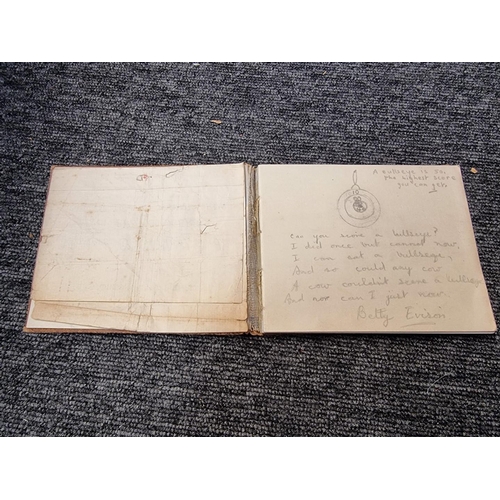 A bullseye is
the highest score
you can get.
Can you score a bullseye?
I did once but cannot now,
I can eat a bullseye,
And so could any cow
A cow couldn't score a bullseye
And nor can I just now.
Betty Evison